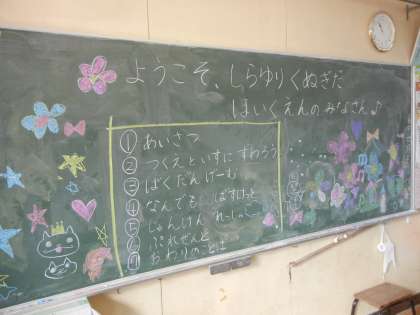 ようこそ、しらゆりくぬぎだ
ほいくえんのみなさん♪
① あいさつ
② つくえといすに すわろう
③ ばくだんげーむ
④ なんでも ばすけっと
⑤ じゃんけん れーしゃー
⑥ ぷれぜんと
⑦ おわりのことば